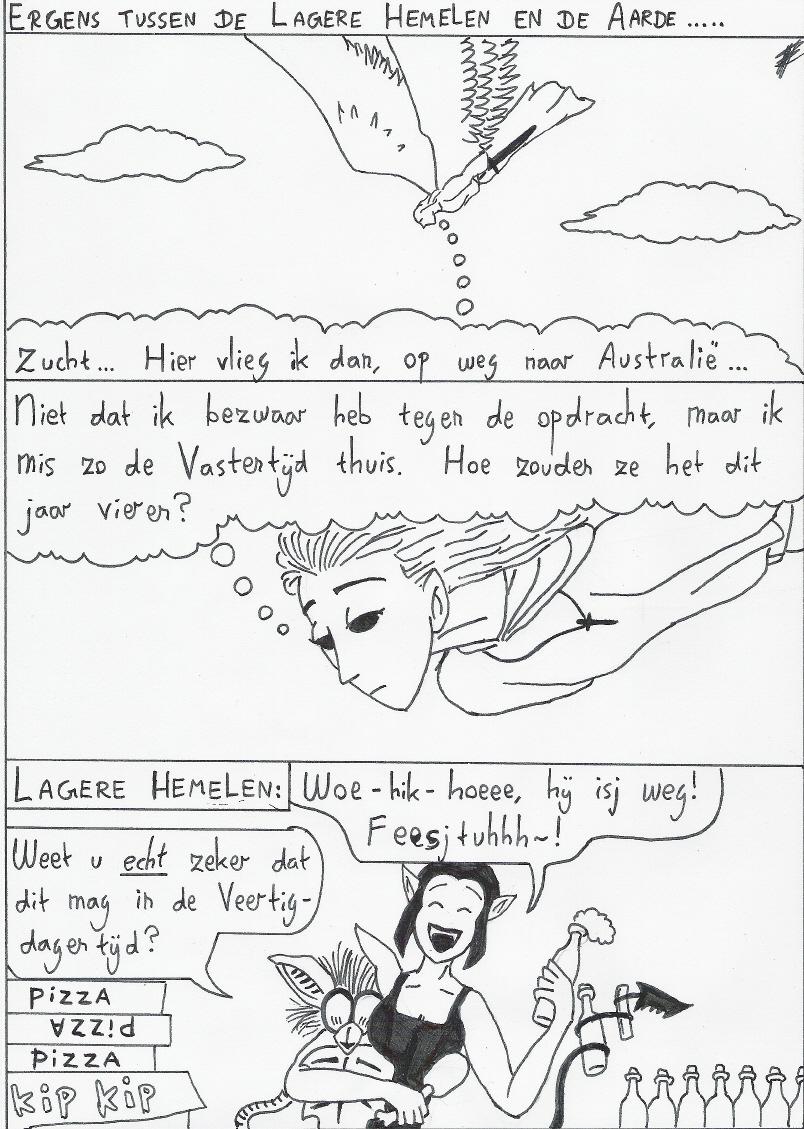 ERGENS TUSSEN DE LAGERE HEMELEN EN DE AARDE.....
Zucht... Hier vlieg ik dan, op weg naar Australië...
Niet dat ik bezwaar heb tegen de opdracht, maar ik
mis zo de Vastentijd thuis. Hoe zouden ze het dit
jaar vieren?
LAGERE HEMELEN:
Woe-hik-hoeee, hij isj weg!
Feesjtuhhh~!
Weet u echt zeker dat
dit mag in de Veertig-
dagentijd?
PIZZA
PIZZA
PIZZA
KIP KIP